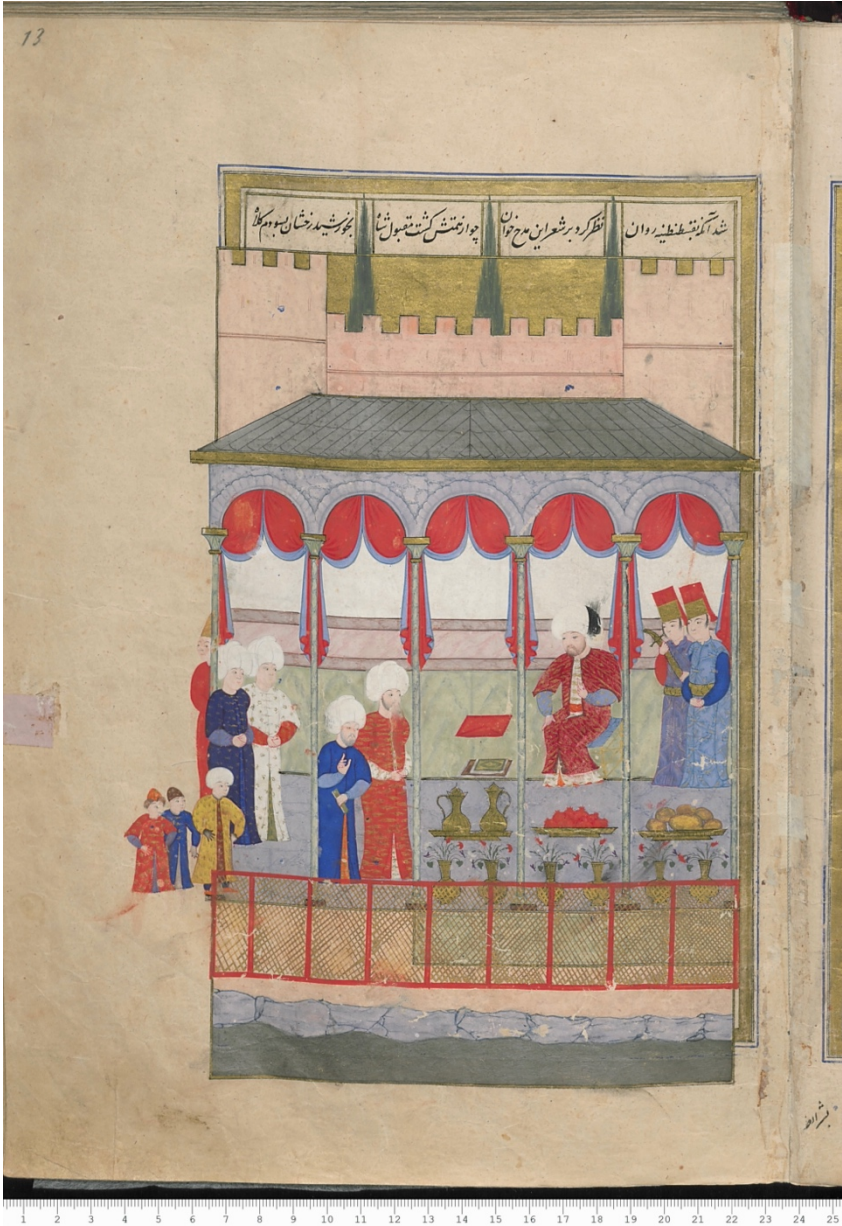 13
شد آنگه بقسطنطنیه روان
نظر کرد بر شعر این مدح خوان
چو از همتش گشت مقبول شاه
بخورشید رخشان بسودم کلاه
1 2 3 4 5 6 7 8 9 10 11 12 13 14 15 16 17 18 19 20 21 22 23 24 25